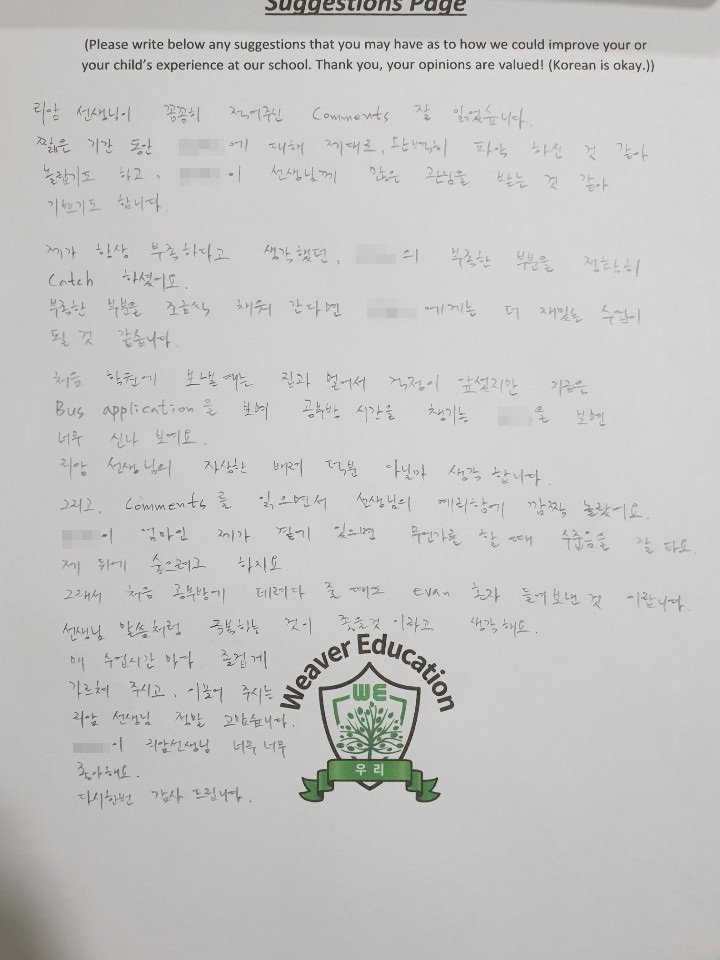 Suggestions Page
(Please write below any suggestions that you may have as to how we could improve your or
your child's experience at our school. Thank you, your opinions are valued! (Korean is okay.))
리암 선생님이 꼼꼼히 적어주신 Comments 잘 읽었습니다.
짧은 기간 동안 에 대해 제대로, 완벽히 파악 하신 것 같아
놀랍기도 하고, 이 선생님께 많은 관심을 받는 것 같아
기쁘기도 합니다.
제가 항상 부족하다고 생각했던, 의 부족한 부분을 정확히
Catch 하셨어요.
부족한 부분을 조금씩 채워 간다면 에게는 더 재밌는 수업이
될 것 같습니다.
처음 학원에 보낼때는 집과 멀어서 걱정이 앞섰지만 지금은
Bus application을 보며 공부방 시간을 챙기는 을 보면
너무 신나 보여요.
리암 선생님의 자상한 배려 덕분 아닐까 생각 합니다.
그리고, Comments를 읽으면서 선생님의 예리함에 깜짝 놀랐어요.
이 엄마인 제가 곁에 있으면 무언가를 할 때 수줍음을 잘 타요.
제 뒤에 숨으려고 하지요
그래서 처음 공부방에 데려다 줄 때도 evan 혼자 들여보낸 것 이랍니다.
선생님 말씀처럼 극복하는 것이 좋을것 이라고 생각해요.
매 수업시간 마다 즐겁게
가르쳐 주시고, 이끌어 주시는
리암 선생님 정말 고맙습니다.
이 리암선생님 너무 너무
좋아해요.
다시한번 감사 드립니다.
Weaver Education
WE
우리